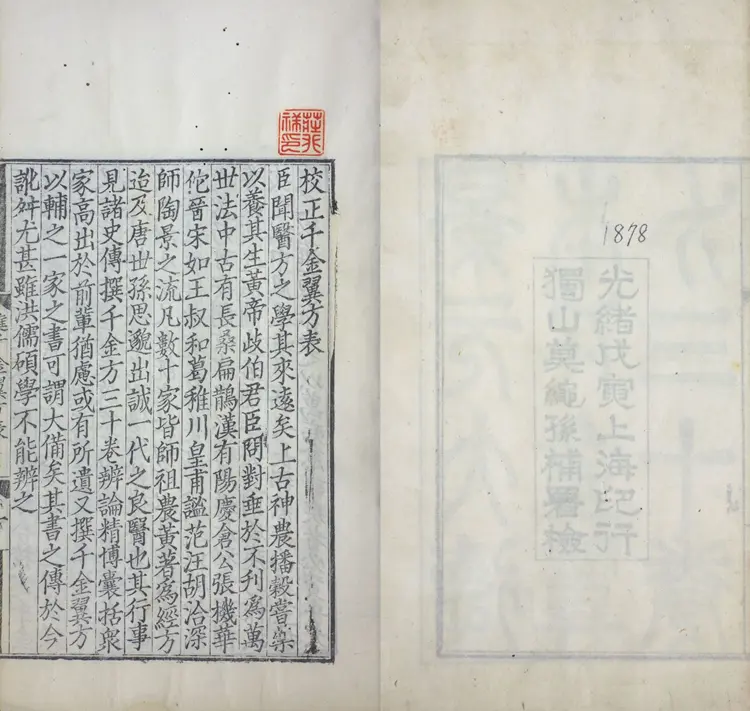 1878
光緒戊寅上海印行
獨山莫繩孫補署檢
莊兆祥印
校正千金翼方表
臣聞醫方之學其來遠矣上古神農播穀嘗藥
以養其生黃帝歧伯君臣問對垂於不刋爲萬
世法中古有長桑扁鵲漢有陽慶倉公張機華
佗晉宋如王叔和葛稚川皇甫謐范汪胡洽深
師陶景之流凡數十家皆師祖農黃著爲經方
迨及唐世孫思邈出誠一代之良醫也其行事
見諸史傳撰千金方三十卷辨論精博囊括衆
家高出於前輩猶慮或有所遺又撰千金翼方
以輔之一家之書可謂大備矣其書之傳於今
訛舛尤甚雖洪儒碩學不能辨之